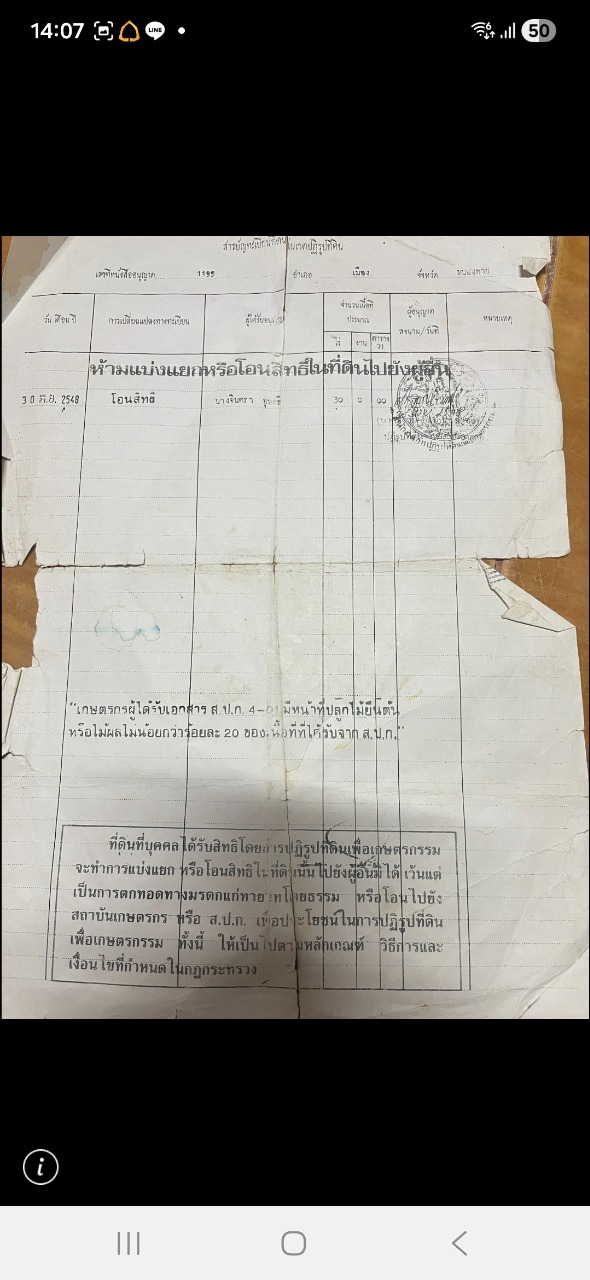 14:07
LINE
50
สารบัญทะเบียนที่ดินในเขตปฏิรูปที่ดิน
เลขที่หนังสืออนุญาต 1199 อำเภอ เมือง จังหวัด
วัน เดือน ปี การเปลี่ยนแปลงทางทะเบียน ผู้ได้รับอนุญาต จำนวนเนื้อที่ประมาณ ผู้อนุญาต ลงนาม/วันที่ หมายเหตุ
ไร่ งาน ตาราง วา
ห้ามแบ่งแยกหรือโอนสิทธิในที่ดินไปยังผู้อื่น
30 มิ.ย. 2548 โอนสิทธิ นางจินตรา 30
"เกษตรกรผู้ได้รับเอกสาร ส.ป.ก. 4-01 มีหน้าที่ปลูกไม้ยืนต้น
หรือไม้ผลไม่น้อยกว่าร้อยละ 20 ของเนื้อที่ที่ได้รับจาก ส.ป.ก."
ที่ดินที่บุคคลได้รับสิทธิโดยการปฏิรูปที่ดินเพื่อเกษตรกรรม
จะทำการแบ่งแยก หรือโอนสิทธิในที่ดินนั้นไปยังผู้อื่นมิได้ เว้นแต่
เป็นการตกทอดทางมรดกแก่ทายาทโดยธรรม หรือโอนไปยัง
สถาบันเกษตรกร หรือ ส.ป.ก. เพื่อประโยชน์ในการปฏิรูปที่ดิน
เพื่อเกษตรกรรม ทั้งนี้ ให้เป็นไปตามหลักเกณฑ์ วิธีการและ
เงื่อนไขที่กำหนดในกฎกระทรวง